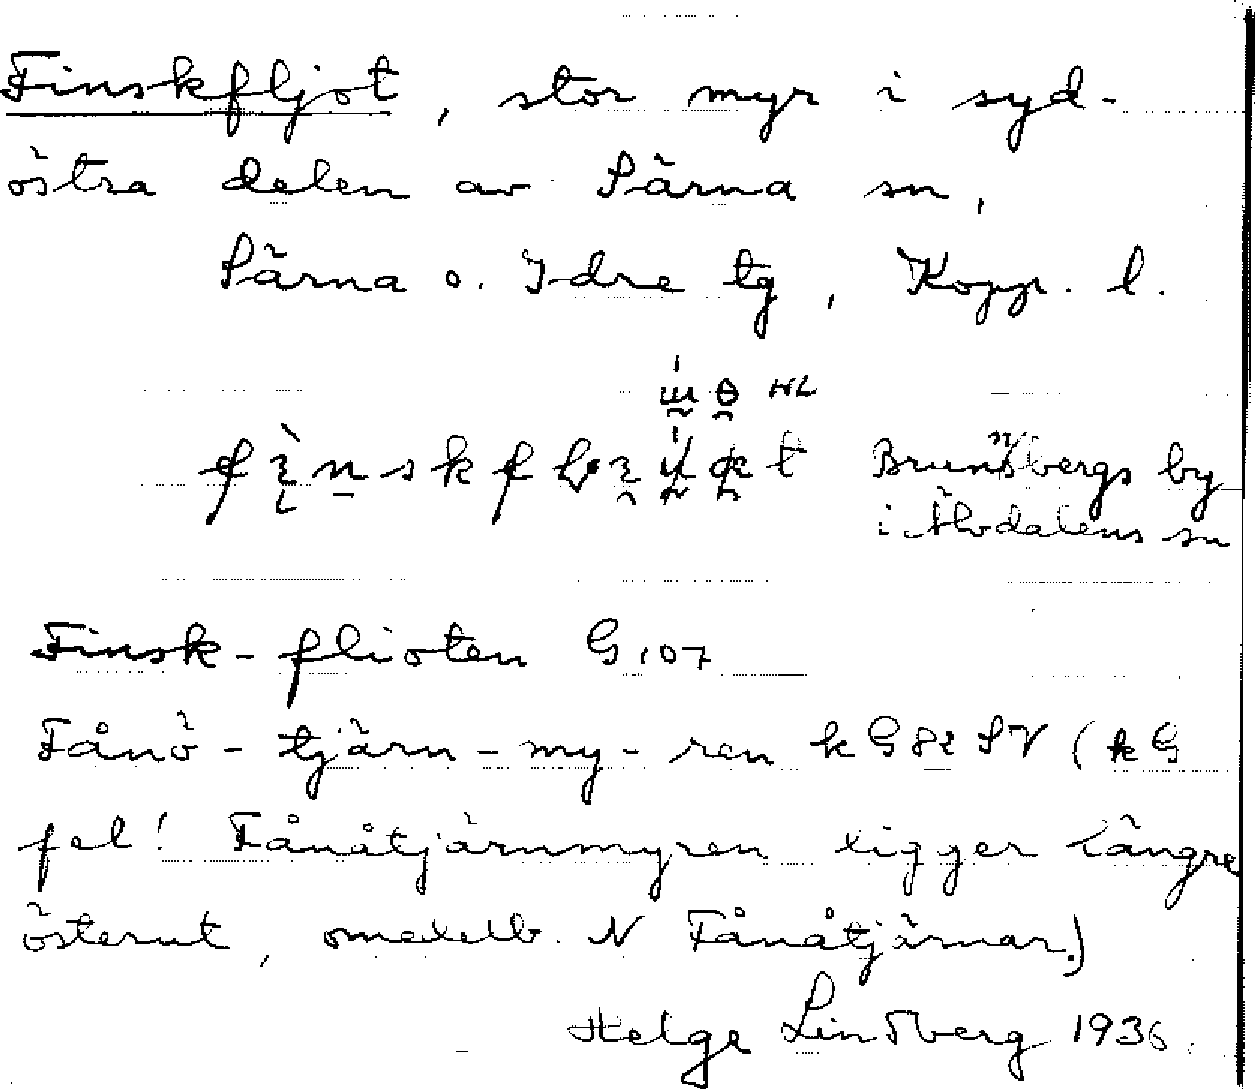 Finskfljot, stor myr i syd-
östra delen av Särna sn,
Särna o. Idre tg, Kopp. l.
HL
Brunnsbergs by
i Älvdalens sn
Finsk-flioten G107
Fånö-tjärn-my-ren kG82 SV (kG
fel! Fånåtjärnmyren ligger längre
österut, omedelb. N Fånåtjärnar.)
Helge Lindberg 1936.